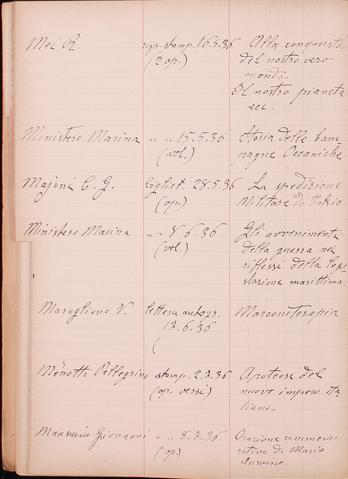 Mei R. risp. stamp. 16.5.36 Alla conquista
(2 op.) del nostro vero
mondo.
Il nostro pianeta
ecc.
Ministero Marina " " 15.5.36 Storia delle Cam
(vol.) pagne Oceaniche
Majoni C. G. bigliet. 28.5.36 La spedizione
(op.) Militare di
Ministero Marina " " 8.6.36 Gli avvenimenti
(vol.) della guerra nei
riflessi della legi
slazione marittima.
Maragliano V. lettera autogr. Marconiterapia
12.6.36
(
Menotti Pellegrino stamp. 2.7.36 Apoteosi del
(op. versi) nuovo impero ita
liano.
Giovanni " " 8.7.36 Orazione commemo
(op.) rativa di Mario